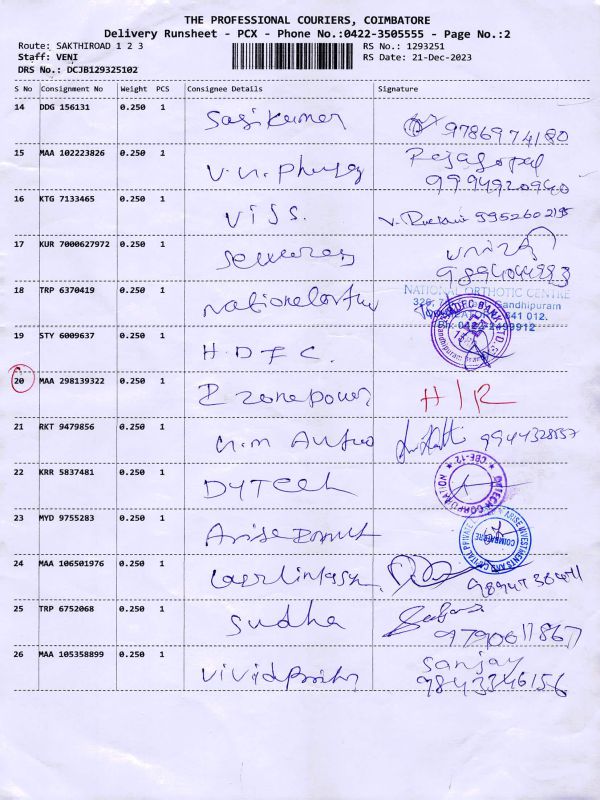 THE PROFESSIONAL COURIERS, COIMBATORE
Delivery Runsheet - PCX - Phone No.:0422-3505555 - Page No.:2
Route: SAKTHIROAD 1 2 3
RS No.: 1293251
Staff: VENI
RS Date: 21-Dec-2023
DRS No.: DCJB129325102
S No Consignment No Weight PCS Consignee Details Signature
14 DDG 156131 0.250 1 Sasikumar 9786974180
15 MAA 102223826 0.250 1 V.N. Rajagopal
9994920940
16 KTG 7133465 0.250 1 VISS. 9952602195
17 KUR 7000627972 0.250 1
9894044983
18 TRP 6370419 0.250 1 NATIONAL ORTHOTIC CENTRE
Gandhipuram
641 012.
19 STY 6009637 0.250 1 H.D.F.C. HDFC BANK LTD
20 MAA 298139322 0.250 1 Z zone power H/R
21 RKT 9479856 0.250 1 9944328557
22 KRR 5837481 0.250 1 DYTECH DYTECH CORPORATION CBE-12
23 MYD 9755283 0.250 1 Arise ARISE INVESTMENTS AND CAPITAL PRIVATE COIMBATORE
24 MAA 106501976 0.250 1
25 TRP 6752068 0.250 1 Sudha
9790611867
26 MAA 105358899 0.250 1 Sanjay
9843346156